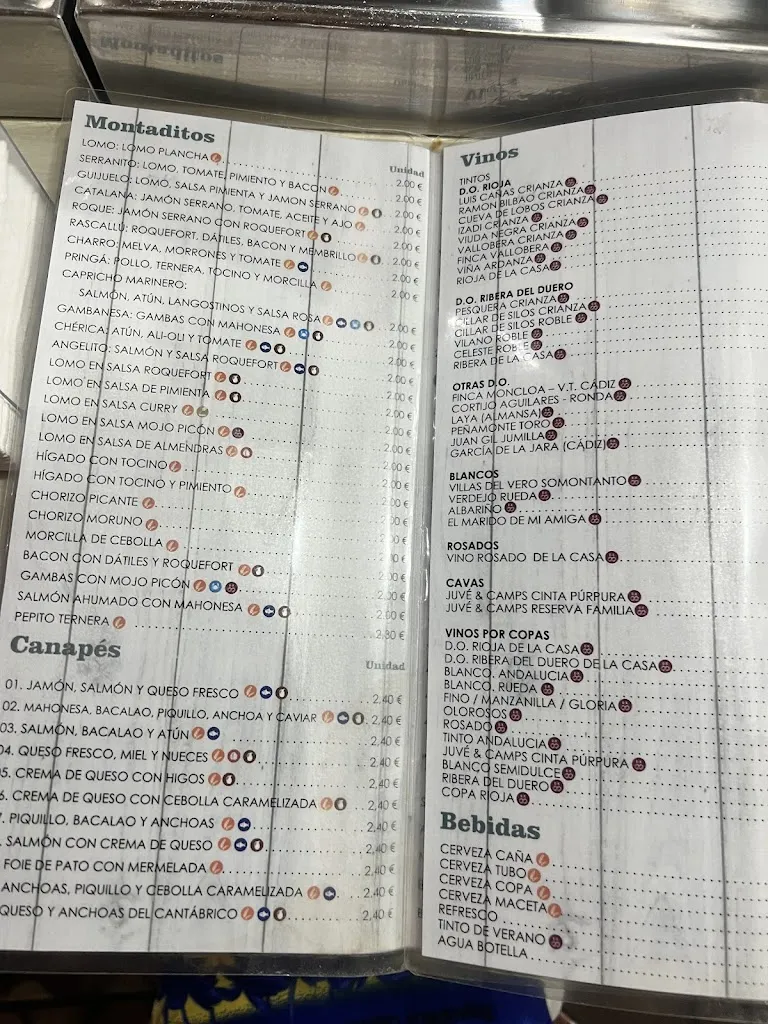 Montaditos
Unidad
LOMO: LOMO PLANCHA 2,00 €
SERRANITO: LOMO, TOMATE, PIMIENTO Y BACON 2,00 €
GUIJUELO: LOMO, SALSA PIMIENTA Y JAMON SERRANO 2,00 €
CATALANA: JAMÓN SERRANO, TOMATE, ACEITE Y AJO 2,00 €
ROQUE: JAMÓN SERRANO CON ROQUEFORT 2,00 €
RASCALLÚ: ROQUEFORT, DÁTILES, BACON Y MEMBRILLO 2,00 €
CHARRO: MELVA, MORRONES Y TOMATE 2,00 €
PRINGÁ: POLLO, TERNERA, TOCINO Y MORCILLA 2,00 €
CAPRICHO MARINERO:
SALMÓN, ATÚN, LANGOSTINOS Y SALSA ROSA 2,00 €
GAMBANESA: GAMBAS CON MAHONESA 2,00 €
CHÉRICA: ATÚN, ALI-OLI Y TOMATE 2,00 €
ANGELITO: SALMÓN Y SALSA ROQUEFORT 2,00 €
LOMO EN SALSA ROQUEFORT 2,00 €
LOMO EN SALSA DE PIMIENTA 2,00 €
LOMO EN SALSA CURRY 2,00 €
LOMO EN SALSA MOJO PICÓN 2,00 €
LOMO EN SALSA DE ALMENDRAS 2,00 €
HÍGADO CON TOCINO 2,00 €
HÍGADO CON TOCINO Y PIMIENTO 2,00 €
CHORIZO PICANTE 2,00 €
CHORIZO MORUNO 2,00 €
MORCILLA DE CEBOLLA 2,00 €
BACON CON DÁTILES Y ROQUEFORT 2,00 €
GAMBAS CON MOJO PICÓN 2,00 €
SALMÓN AHUMADO CON MAHONESA 2,00 €
PEPITO TERNERA 2,80 €
Canapés
Unidad
01. JAMÓN, SALMÓN Y QUESO FRESCO 2,40 €
02. MAHONESA, BACALAO, PIQUILLO, ANCHOA Y CAVIAR 2,40 €
03. SALMÓN, BACALAO Y ATÚN 2,40 €
04. QUESO FRESCO, MIEL Y NUECES 2,40 €
5. CREMA DE QUESO CON HIGOS 2,40 €
CREMA DE QUESO CON CEBOLLA CARAMELIZADA 2,40 €
PIQUILLO, BACALAO Y ANCHOAS 2,40 €
SALMÓN CON CREMA DE QUESO 2,40 €
FOIE DE PATO CON MERMELADA 2,40 €
ANCHOAS, PIQUILLO Y CEBOLLA CARAMELIZADA 2,40 €
QUESO Y ANCHOAS DEL CANTÁBRICO 2,40 €
Vinos
TINTOS
D.O. RIOJA
LUIS CAÑAS CRIANZA
RAMÓN BILBAO CRIANZA
CUEVA DE LOBOS CRIANZA
IZADI CRIANZA
VIUDA NEGRA CRIANZA
VALLOBERA CRIANZA
FINCA VALLOBERA
VIÑA ARDANZA
RIOJA DE LA CASA
D.O. RIBERA DEL DUERO
PESQUERA CRIANZA
CILLAR DE SILOS CRIANZA
CILLAR DE SILOS ROBLE
VILANO ROBLE
CELESTE ROBLE
RIBERA DE LA CASA
OTRAS D.O.
FINCA MONCLOA – V.T. CÁDIZ
CORTIJO AGUILARES - RONDA
LAYA (ALMANSA)
PEÑAMONTE TORO
JUAN GIL JUMILLA
GARCÍA DE LA JARA (CÁDIZ)
BLANCOS
VILLAS DEL VERO SOMONTANTO
VERDEJO RUEDA
ALBARIÑO
EL MARIDO DE MI AMIGA
ROSADOS
VINO ROSADO DE LA CASA
CAVAS
JUVÉ & CAMPS CINTA PÚRPURA
JUVÉ & CAMPS RESERVA FAMILIA
VINOS POR COPAS
D.O. RIOJA DE LA CASA
D.O. RIBERA DEL DUERO DE LA CASA
BLANCO. ANDALUCIA
BLANCO. RUEDA
FINO / MANZANILLA / GLORIA
OLOROSOS
ROSADO
TINTO ANDALUCIA
JUVÉ & CAMPS CINTA PÚRPURA
BLANCO SEMIDULCE
RIBERA DEL DUERO
COPA RIOJA
Bebidas
CERVEZA CAÑA
CERVEZA TUBO
CERVEZA COPA
CERVEZA MACETA
REFRESCO
TINTO DE VERANO
AGUA BOTELLA